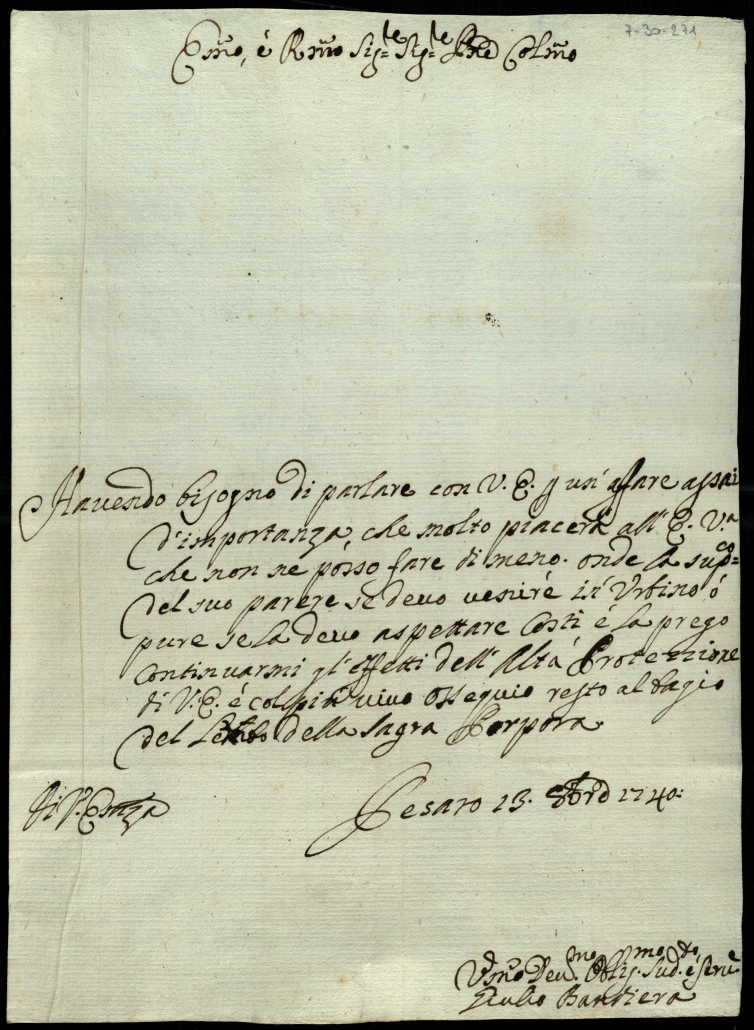 7-30-271
Emo, é Rmo Sig.re Sig.re Pne Colmo
Havendo bisogno di parlare con V. E. p un' affare assai
d'importanza, che molto piacerá all' E. V.a
che non ne posso fare di meno. onde la supco=
del suo parere se devo venire in Urbino ó
pure se la devo aspettare Costi é la prego
continuarmi gl' effetti dell' Alta Protezzione
di V. E. é col piú vivo ossequio resto al bagio
del Lembo della Sagra Porpora.
Di V. Emza
Pesaro 13. 8bre 1740:
Vmo Dev.mo Obblig.mo Sud.to é Serve
Giulio Bandiera